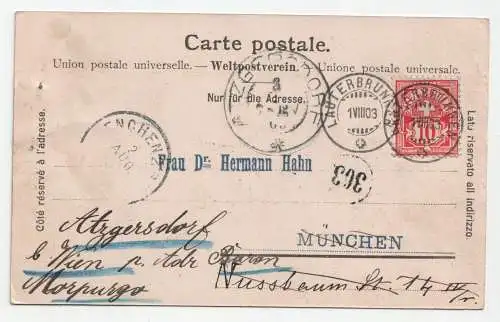 Carte postale.
Union postale universelle. — Weltpostverein. — Unione postale universale.
Nur für die Adresse.
ATZGERSDORF
3
LAUTERBRUNNEN
1 VIII 03
LAUTERBRUNNEN
10
MÜNCHEN 2
2
AUG
Frau Dr. Hermann Hahn
363
Côté réservé à l'adresse.
Lato riservato all indirizzo.
Atzgersdorf
b Wien p. Adr Baron
Morpurgo
MÜNCHEN
Nussbaum St. 14 IV/r.